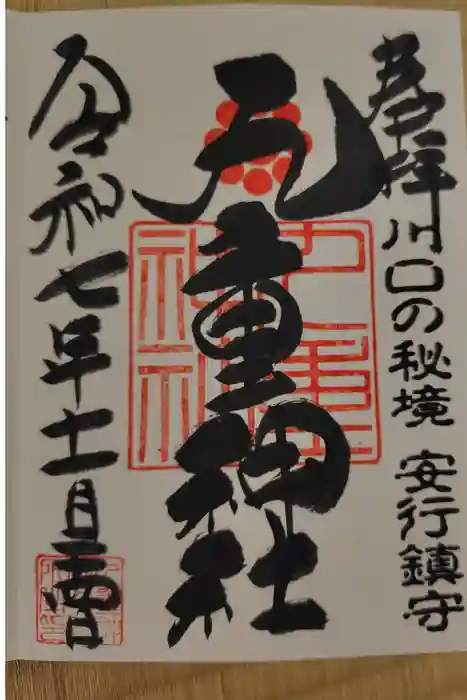 奉拝 川口の秘境 安行鎮守
九重神社
九重神社
令和七年十一月二日